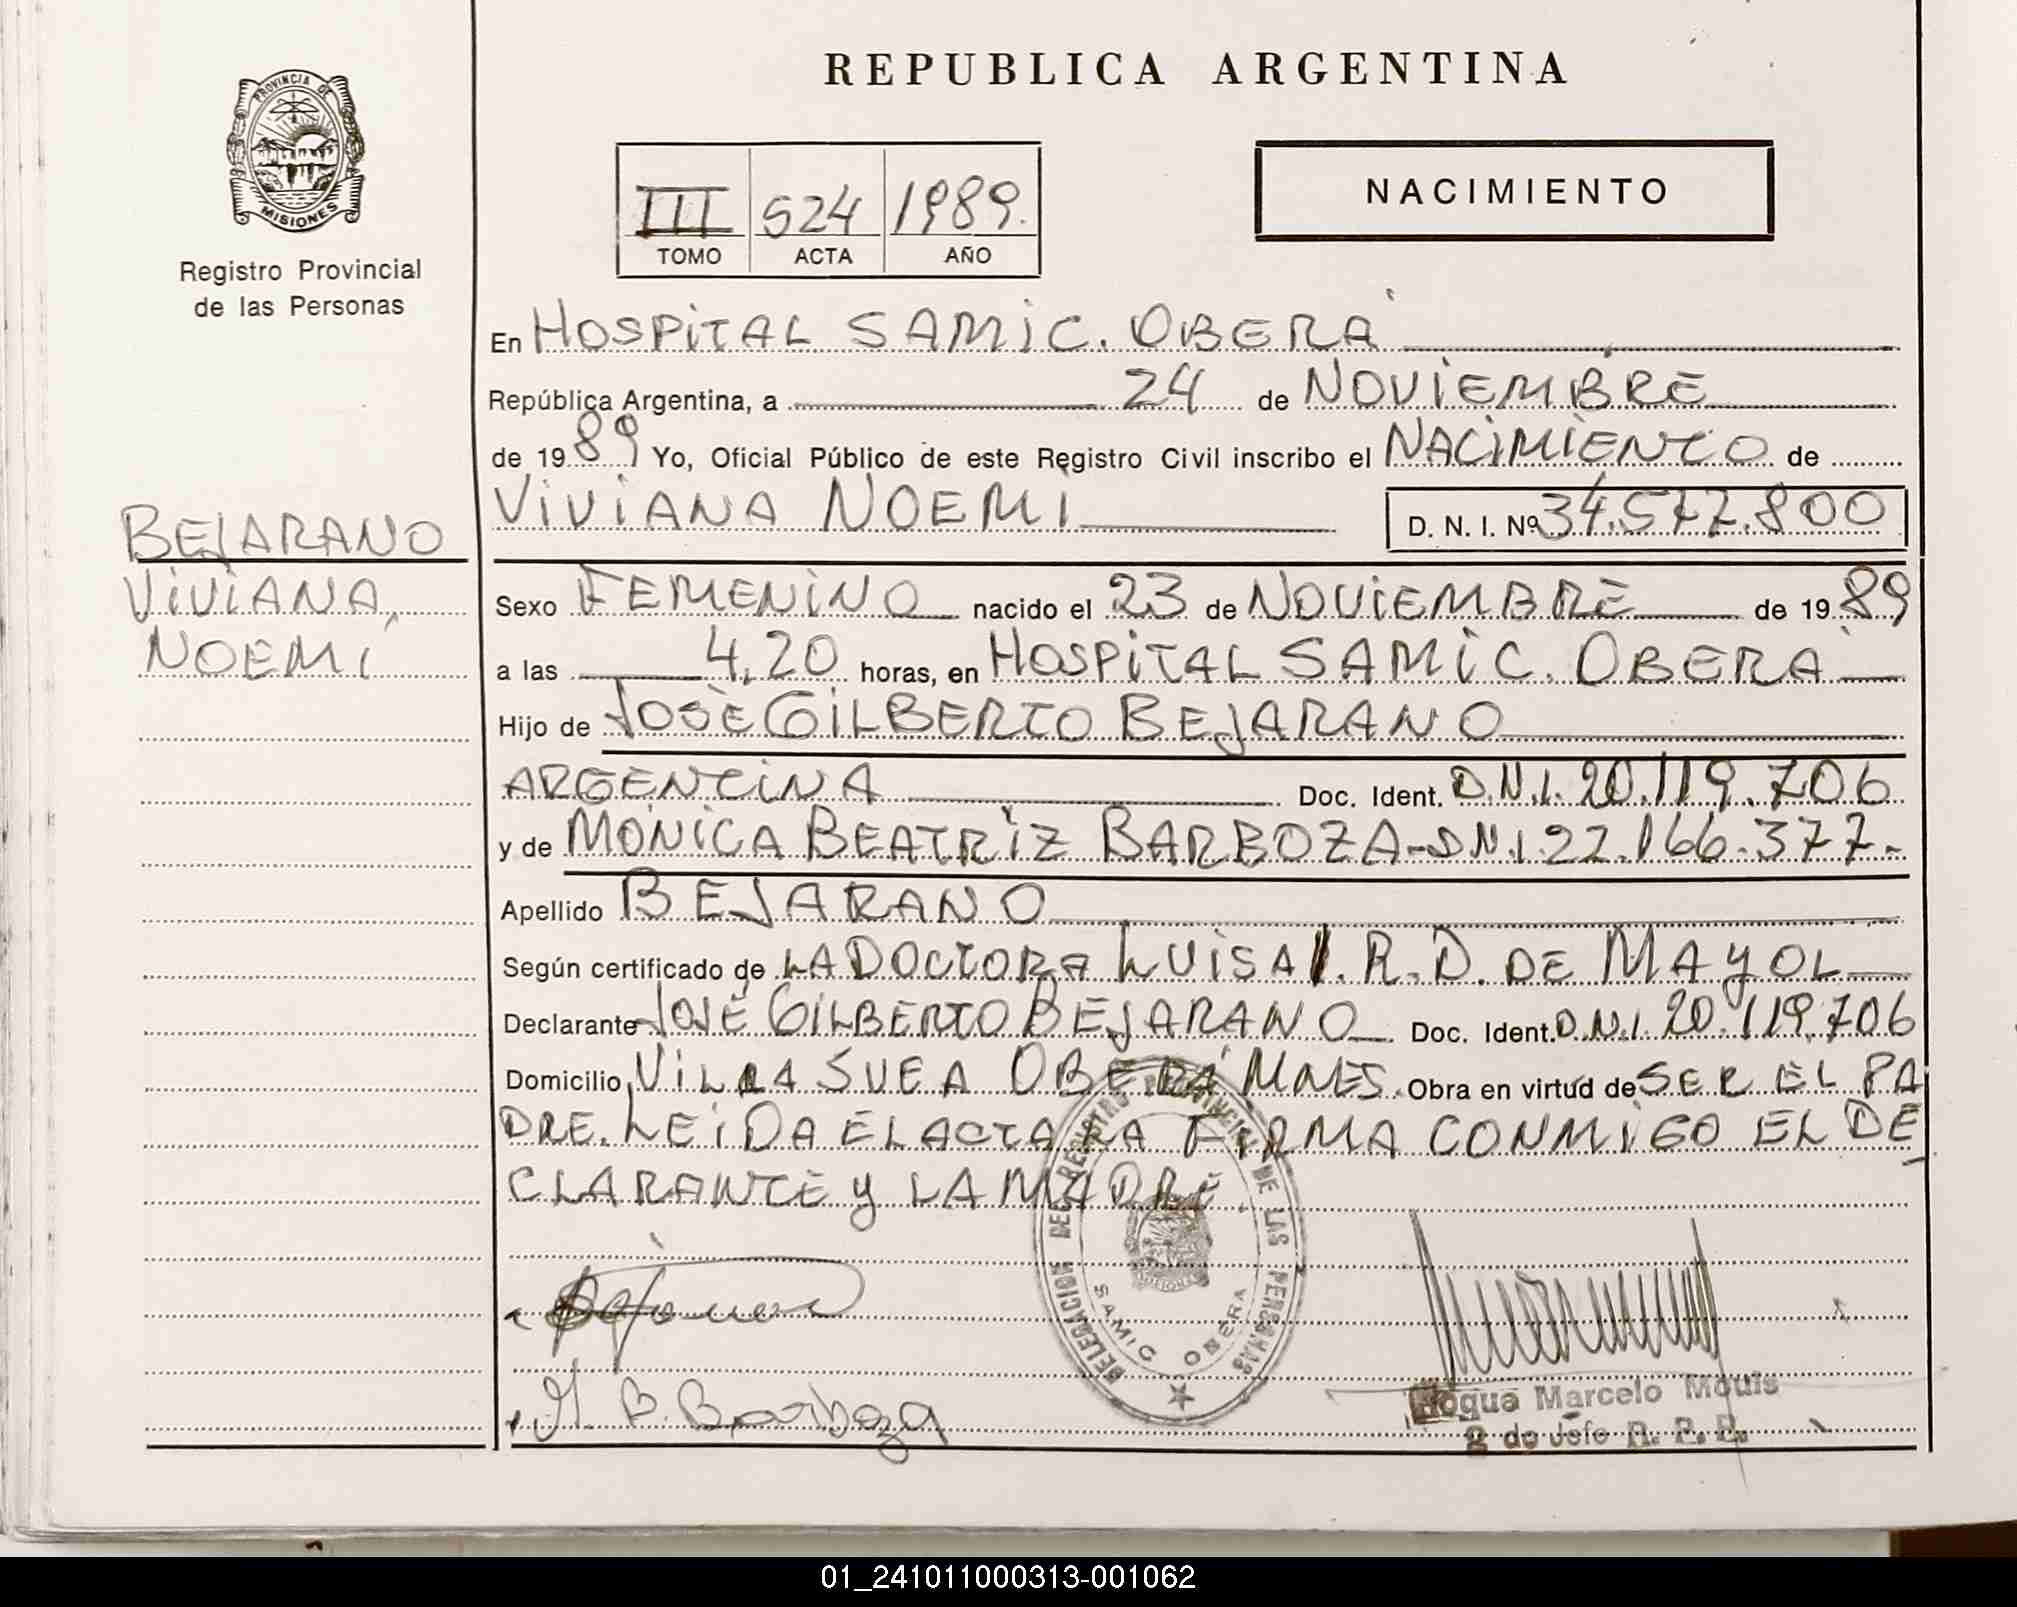 REPUBLICA ARGENTINA
PROVINCIA DE
MISIONES
Registro Provincial
de las Personas
III 524 1989.
TOMO ACTA AÑO
NACIMIENTO
En HOSPITAL SAMIC. OBERA
República Argentina, a 24 de NOVIEMBRE
de 1989 Yo, Oficial Público de este Registro Civil inscribo el NACIMIENTO de
VIVIANA NOEMI D. N. I. Nº 34.577.800
BEJARANO
VIVIANA,
NOEMÍ
Sexo FEMENINO nacido el 23 de NOVIEMBRE de 1989
a las 4,20 horas, en HOSPITAL SAMIC. OBERA
Hijo de JOSÈ GILBERTO BEJARANO
ARGENTINA Doc. Ident. D.N.I. 20.119.706
y de MÓNICA BEATRIZ BARBOZA-D.N.I.22.166.377-
Apellido BEJARANO
Según certificado de LA DOCTORA LUISA I. R. D. DE MAYOL
Declarante JOSÉ GILBERTO BEJARANO Doc. Ident. D.N.I. 20.119.706
Domicilio VILLA SUEA OBERÁ MNES. Obra en virtud de SER EL PA
DRE. LEIDA EL ACTA LA FIRMA CONMIGO EL DE
CLARANTE Y LA MADRE
DELEGACION DEL REGISTRO PROVINCIAL DE LAS PERSONAS
SAMIC OBERA
Bejarano
M. B. Barboza
Roque Marcelo Mouis
2 do Jefe R. P. P.
01_241011000313-001062